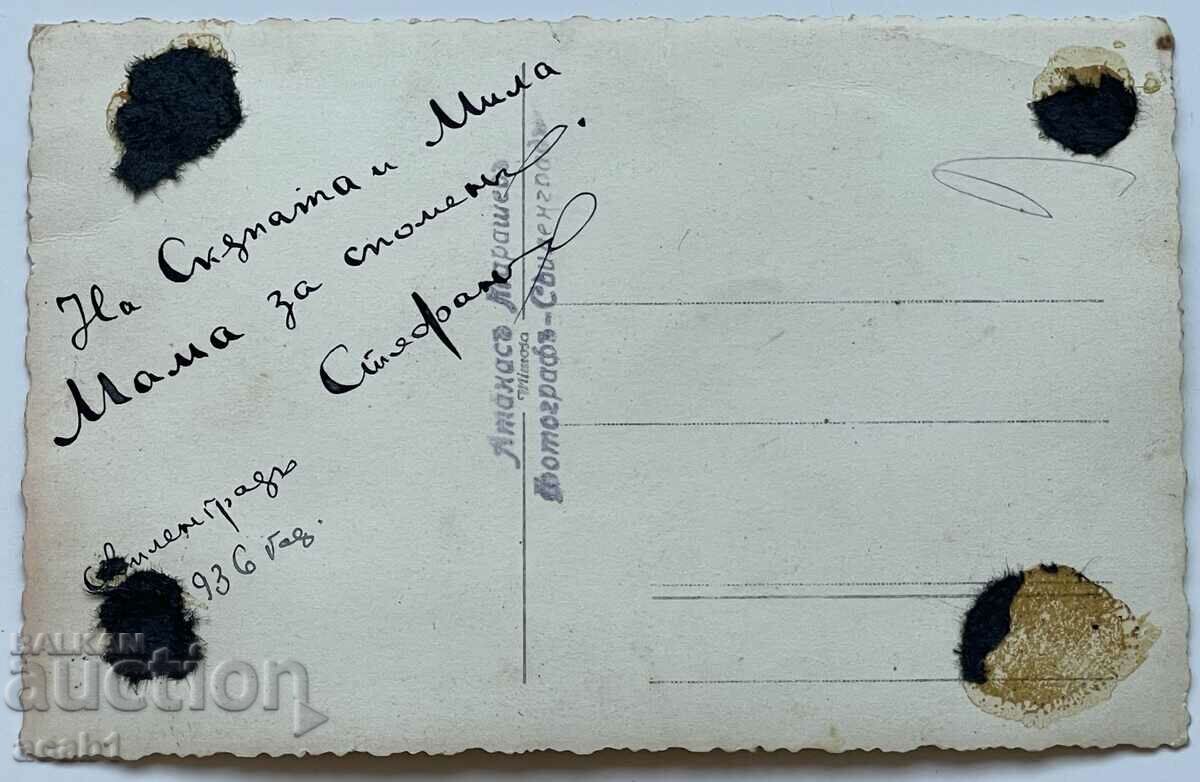 На Скѫпата и Мила
Мама за споменъ.
Стефанъ
Свиленградъ
936 год.
Атанасъ Марашевъ
Mimosa
Фотографъ-Свиленградъ
BALKAN
auction
acab1